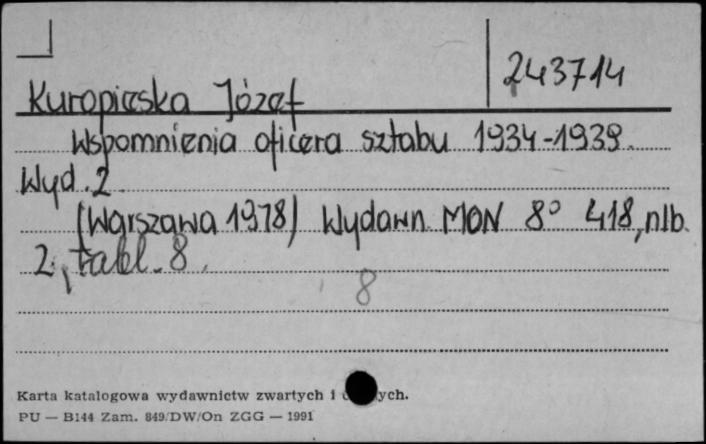 243714
Kuropieska Józef
Wspomnienia oficera sztabu 1934-1939.
Wyd. 2
(Warszawa 1978) Wydawn. MON 8° 418, nlb.
2, tabl. 8.
8
Karta katalogowa wydawnictw zwartych i ych.
PU — B144 Zam. 849/DW/On ZGG — 1991